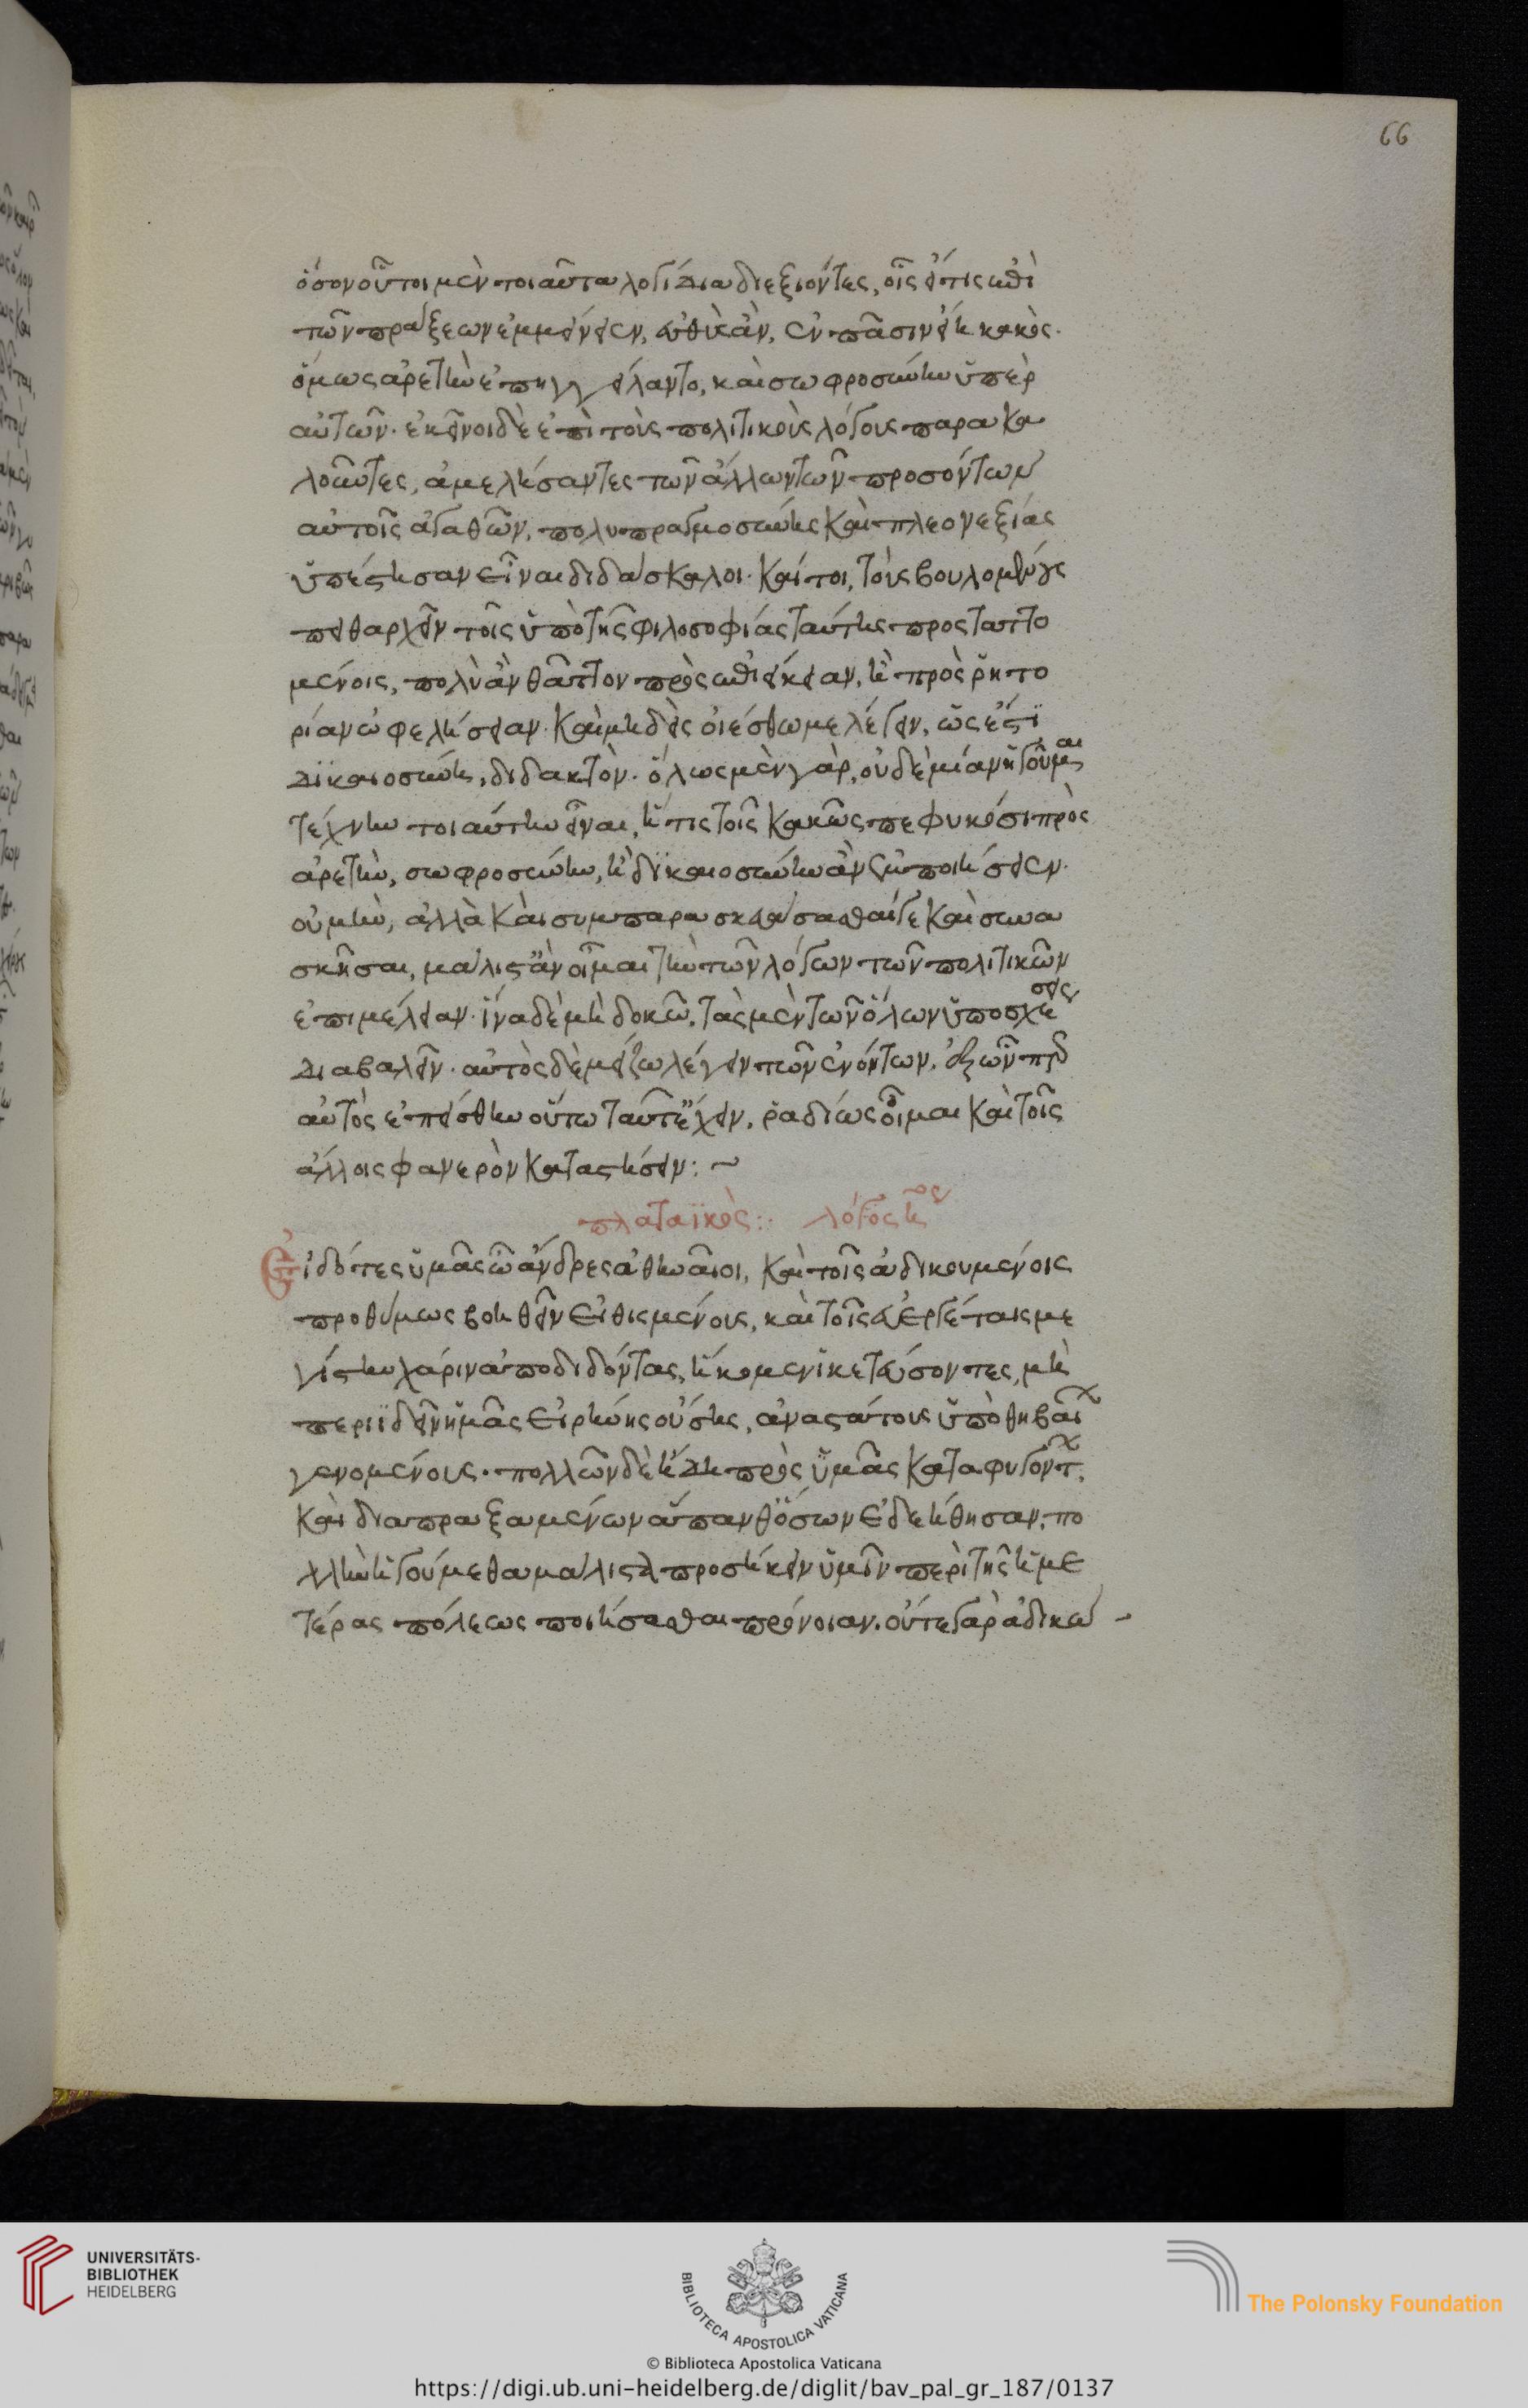 ὅσον οὗτοι μὲν τοιαῦτα λογίδια διεξιόντες, οἷς εἴ τις ἐπὶ
τῶν πράξεων ἐμμείνειεν, εὐθὺς ἂν, ἐν πᾶσιν εἴη κακοῖς.
ὅμως ἀρετὴν ἐπηγγείλαντο, καὶ σωφροσύνην ὑπὲρ
αὐτῶν. ἐκεῖνοι δὲ ἐπὶ τοὺς πολιτικοὺς λόγους παρακα
λοῦντες, ἀμελήσαντες τῶν ἄλλων τῶν προσόντων
αὐτοῖς ἀγαθῶν, πολυπραγμοσύνης καὶ πλεονεξίας
ὑπέστησαν εἶναι διδάσκαλοι. καίτοι, τοὺς βουλομένους
πειθαρχεῖν τοῖς ὑπὸ τῆς φιλοσοφίας ταύτης προσταττο
μένοις, πολὺ ἂν θᾶττον πρὸς ἐπιείκειαν, ἢ πρὸς ῥητο
ρίαν ὠφελήσειαν. καὶ μηδεὶς οἰέσθω με λέγειν, ὡς ἔστϊ
δϊκαιοσύνη, διδακτόν. ὅλως μὲν γὰρ, οὐδεμίαν ἡγοῦμαι
τέχνην τοιαύτην εἶναι, ἥτις τοῖς κακῶς πεφυκόσι πρὸς
ἀρετὴν, σωφροσύνην, ἢ δϊκαιοσύνην ἂν ἐμποιήσειεν.
οὐ μὴν, ἀλλὰ καὶ συμπαρασκευάσασθαί γε καὶ συνα
σκῆσαι, μάλιστ' ἂν οἶμαι τὴν τῶν λόγων τῶν πολιτικῶν
ἐπιμέλειαν. ἵνα δὲ μὴ δοκῶ, τὰς μὲν τῶν ὅλων ὑποσχέσεις
διαβαλεῖν. αὐτὸς δὲ μείζω λέγειν τῶν ἐνόντων, ἐξ ὧνπερ
αὐτὸς ἐπείσθην οὕτω ταῦτ' ἔχειν, ῥαδίως οἶμαι καὶ τοῖς
ἄλλοις φανερὸν καταστήσειν:~
πλαταϊκὸς:· λόγος
Εἰδότες ὑμᾶς ὦ ἄνδρες ἀθηναῖοι, καὶ τοῖς ἀδικουμένοις
προθύμως βοηθεῖν εἰθισμένους, καὶ τοῖς εὐεργέταις με
γίστην χάριν ἀποδιδόντας, ἥκομεν ἱκετεύσοντες, μὴ
περιϊδεῖν ἡμᾶς εἰρήνης οὔσης, ἀναστάτους ὑπὸ θηβαίων
γενομένους. πολλῶν δὲ ἤδη πρὸς ὑμᾶς καταφυγόντων,
καὶ διαπραξαμένων ἅπανθ' ὅσων ἐδεήθησαν, πο
λλὴν ἡγούμεθα μάλιστα προσήκειν ὑμῖν περὶ τῆς ἡμε
τέρας πόλεως ποιήσασθαι πρόνοιαν. οὔτε γὰρ ἀδικώ -
66
UNIVERSITÄTS-
BIBLIOTHEK
HEIDELBERG
BIBLIOTECA APOSTOLICA VATICANA
The Polonsky Foundation
© Biblioteca Apostolica Vaticana
https://digi.ub.uni-heidelberg.de/diglit/bav_pal_gr_187/0137